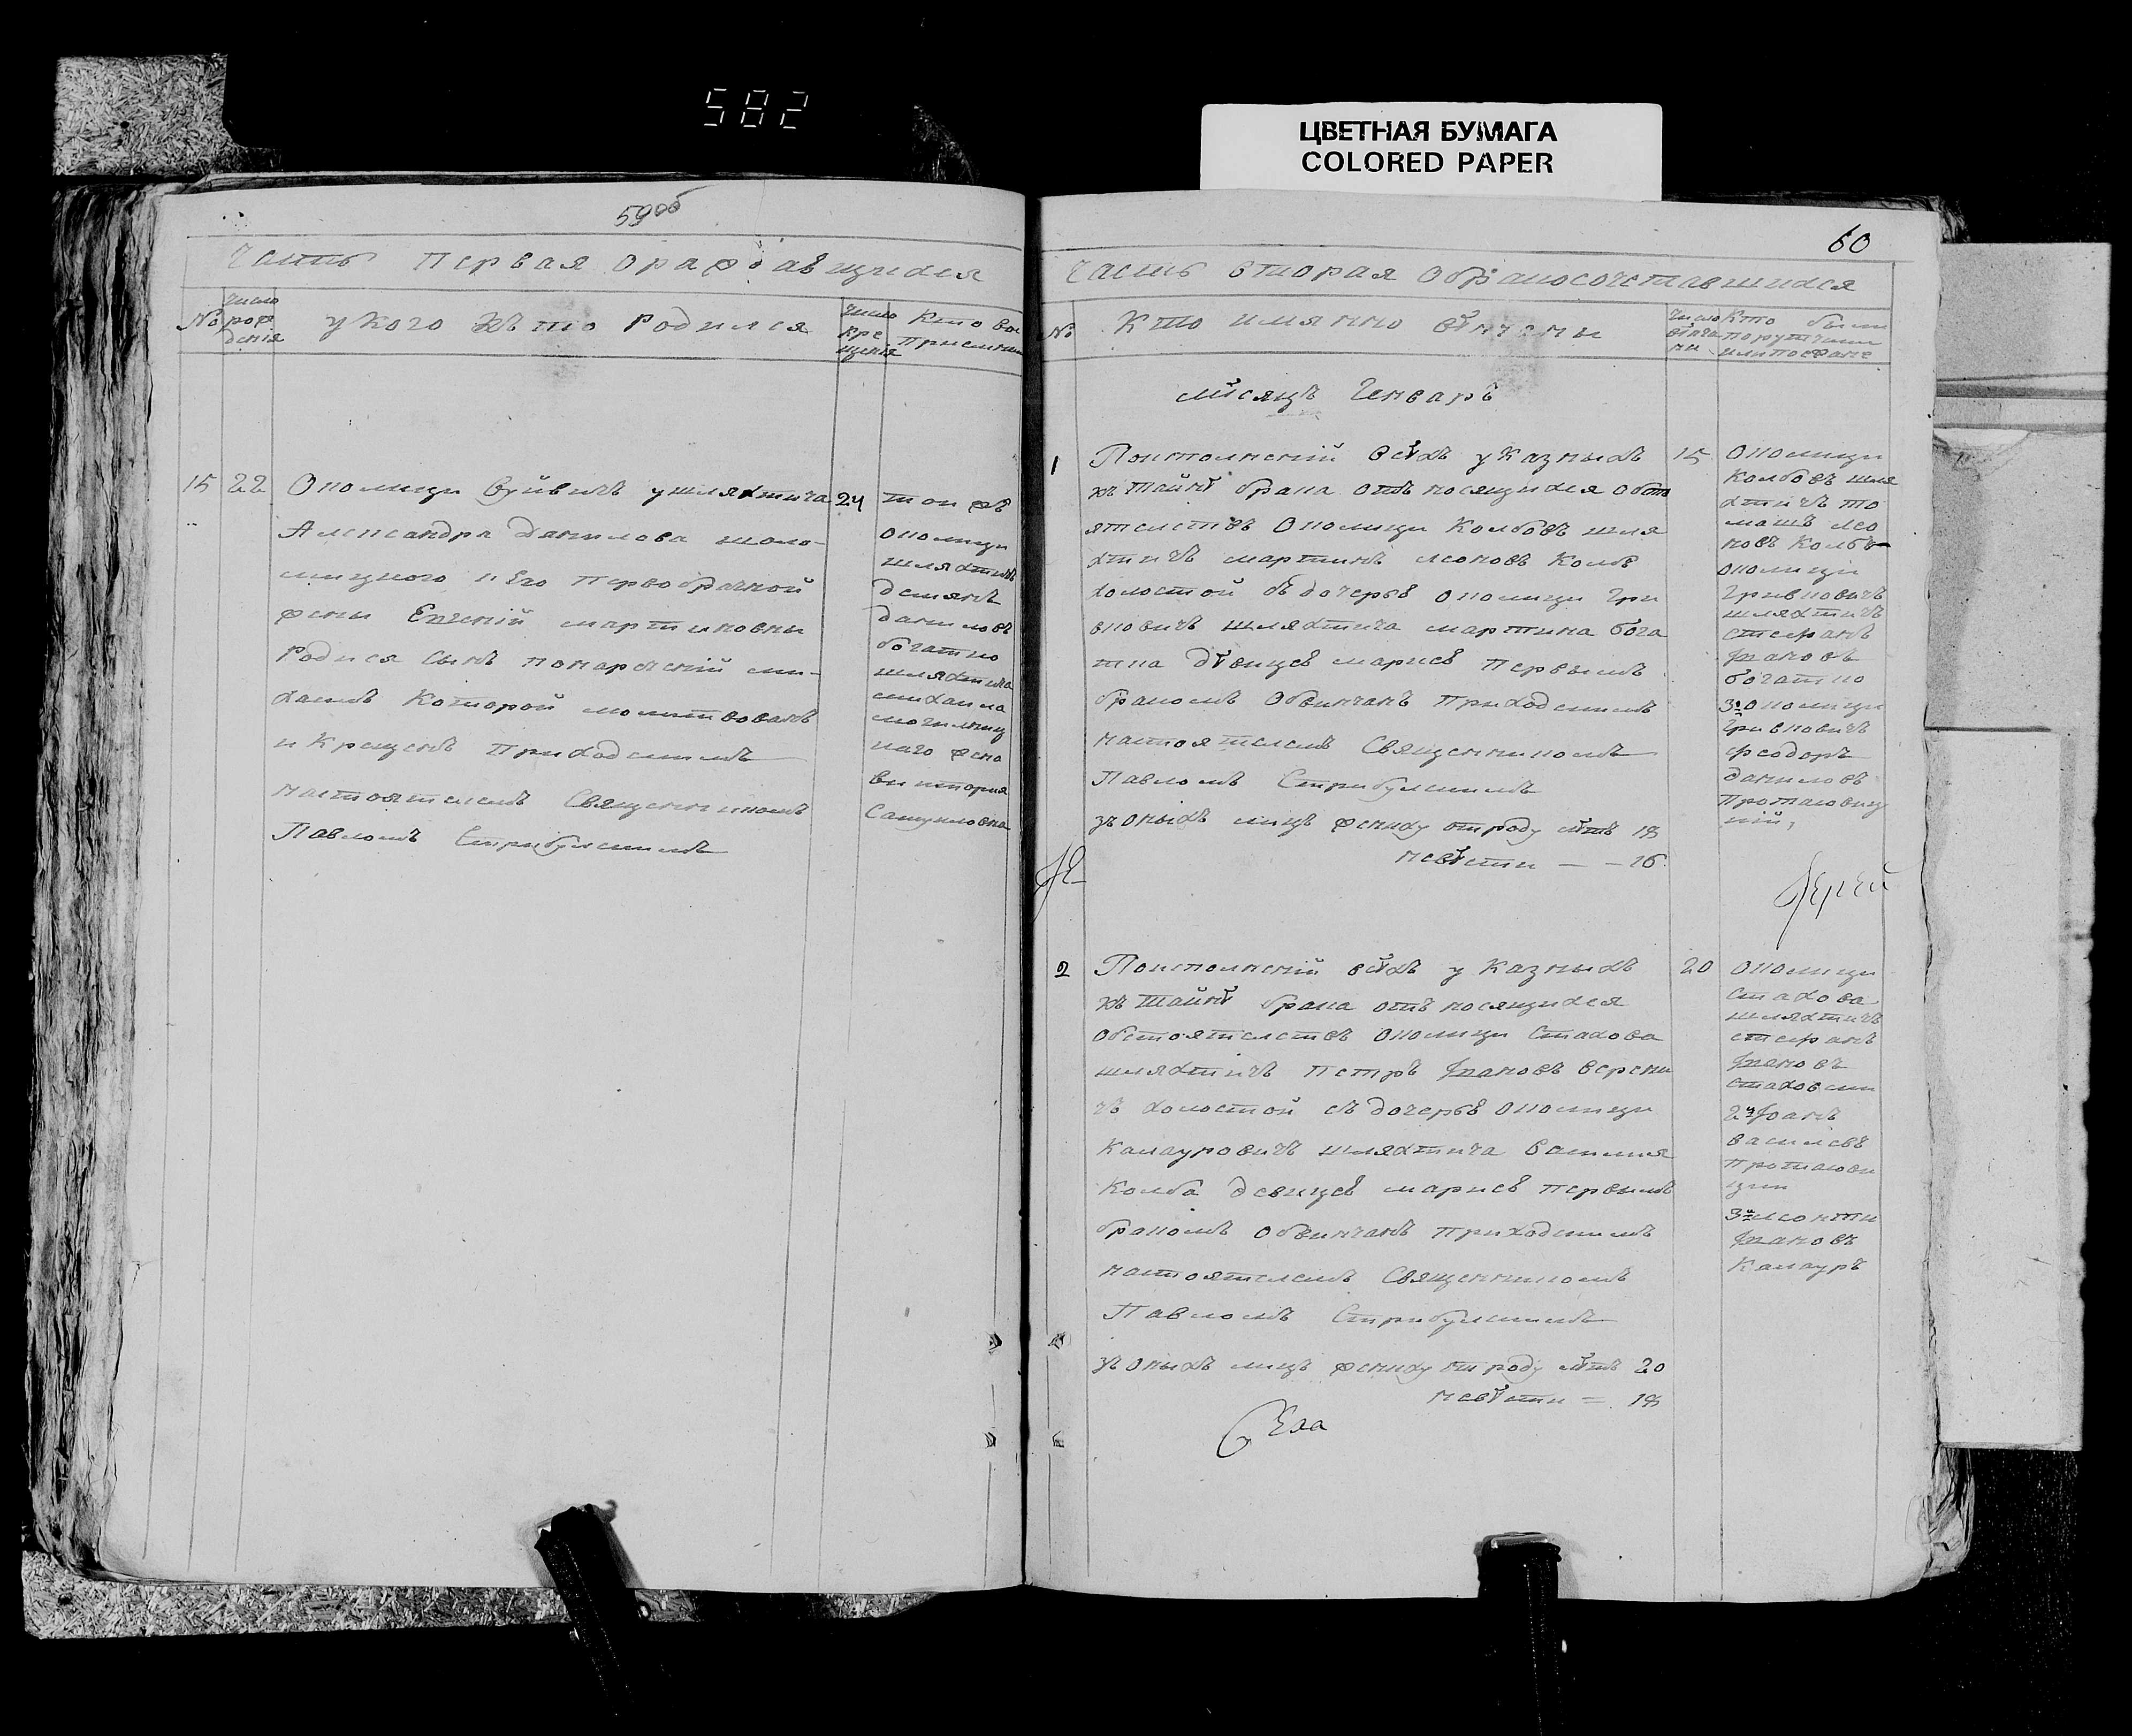 582
ЦВЕТНАЯ БУМАГА
COLORED PAPER
59об
Часть Первая Ораждавщихся
№
число рож денія
у кого кто Родился
число кре щенія
Кто во Приемни
15 22 Околици Вуйвичъ ушляхтича 24
Александра Данилова шоло-
мицкого и Его Первобрачной
жены Евгеній мартиновны
Родися Сынъ
хаилъ Которой молитвованъ
и Крещенъ Приходскимъ
настоятелемъ Священникомъ
Павломъ
той жъ
околици
шляхтичъ
демянъ
даниловъ
богатко
шляхтича
михаила
наго жена
виктория
Самуиловна
60
Часть вторая Обракосочетавшихся
№
Кто имянно вѣнчаны
число вѣнча ны
Кто были поручители или поезжане
мѣсяцъ Генварь
1 По исполненій всѣхъ указныхъ 15
къ тайнѣ брака относящихся обсто
ятелствъ Околици Колбовъ шля
хтичъ мартинъ леоновъ Колб
холостой съ дочерью околици Гри
вковичъ шляхтича мартина бога
тка дѣвицею мариею Первымъ
бракомъ Обвинчанъ Приходскимъ
настоятелемъ Священникомъ
Павломъ
зъ оныхъ лицъ жениху отроду лѣтъ 18
невѣсти — — 16
Околици
Колбовъ шля
хтичъ то
машъ лео
новъ Колб
околици
Гривковичъ
шляхтичъ
стефанъ
Ивановъ
богатко
3й околици
Гривковичъ
феодоръ
даниловъ
Протасовиц
кий,
Іерей
2 По исполненій всѣхъ указныхъ 20
къ тайнѣ брака относящихся
обстоятелствъ Околици Стахова
шляхтичъ Петръ Ивановъ верени
чъ холостой съ дочерью околици
Калауровичъ шляхтича василия
Колба девицею мариею Первымъ
бракомъ обвинчанъ Приходскимъ
настоятелемъ Священникомъ
Павломъ
зъ оныхъ лицъ жениху отроду лѣтъ 20
невѣсти = 18
Околици
Стахова
шляхтичъ
стефанъ
Ивановъ
2й Иванъ
василевъ
Протасови
цки
3й леонти
Ивановъ
Калауръ